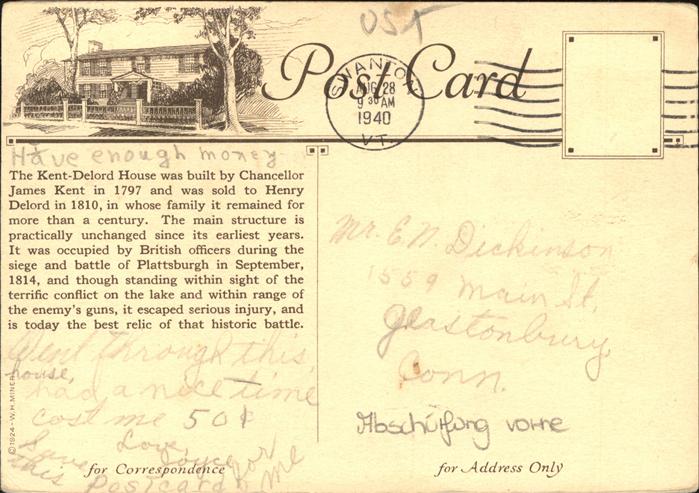 UST
Post Card
SWANTON
AUG 28
9 30 AM
1940
VT.
Have enough money
The Kent-Delord House was built by Chancellor
James Kent in 1797 and was sold to Henry
Delord in 1810, in whose family it remained for
more than a century. The main structure is
practically unchanged since its earliest years.
It was occupied by British officers during the
siege and battle of Plattsburgh in September,
1814, and though standing within sight of the
terrific conflict on the lake and within range of
the enemy's guns, it escaped serious injury, and
is today the best relic of that historic battle.
Went through this
house,
had a nice time
cost me 50¢
Love,
Joyce
Save
this postcard for me
©1924-W.H.MINER
for Correspondence
Mr. E.N. Dickinson
1559 Main St.
Glastonbury
Conn.
Abschürfung vorne
for Address Only